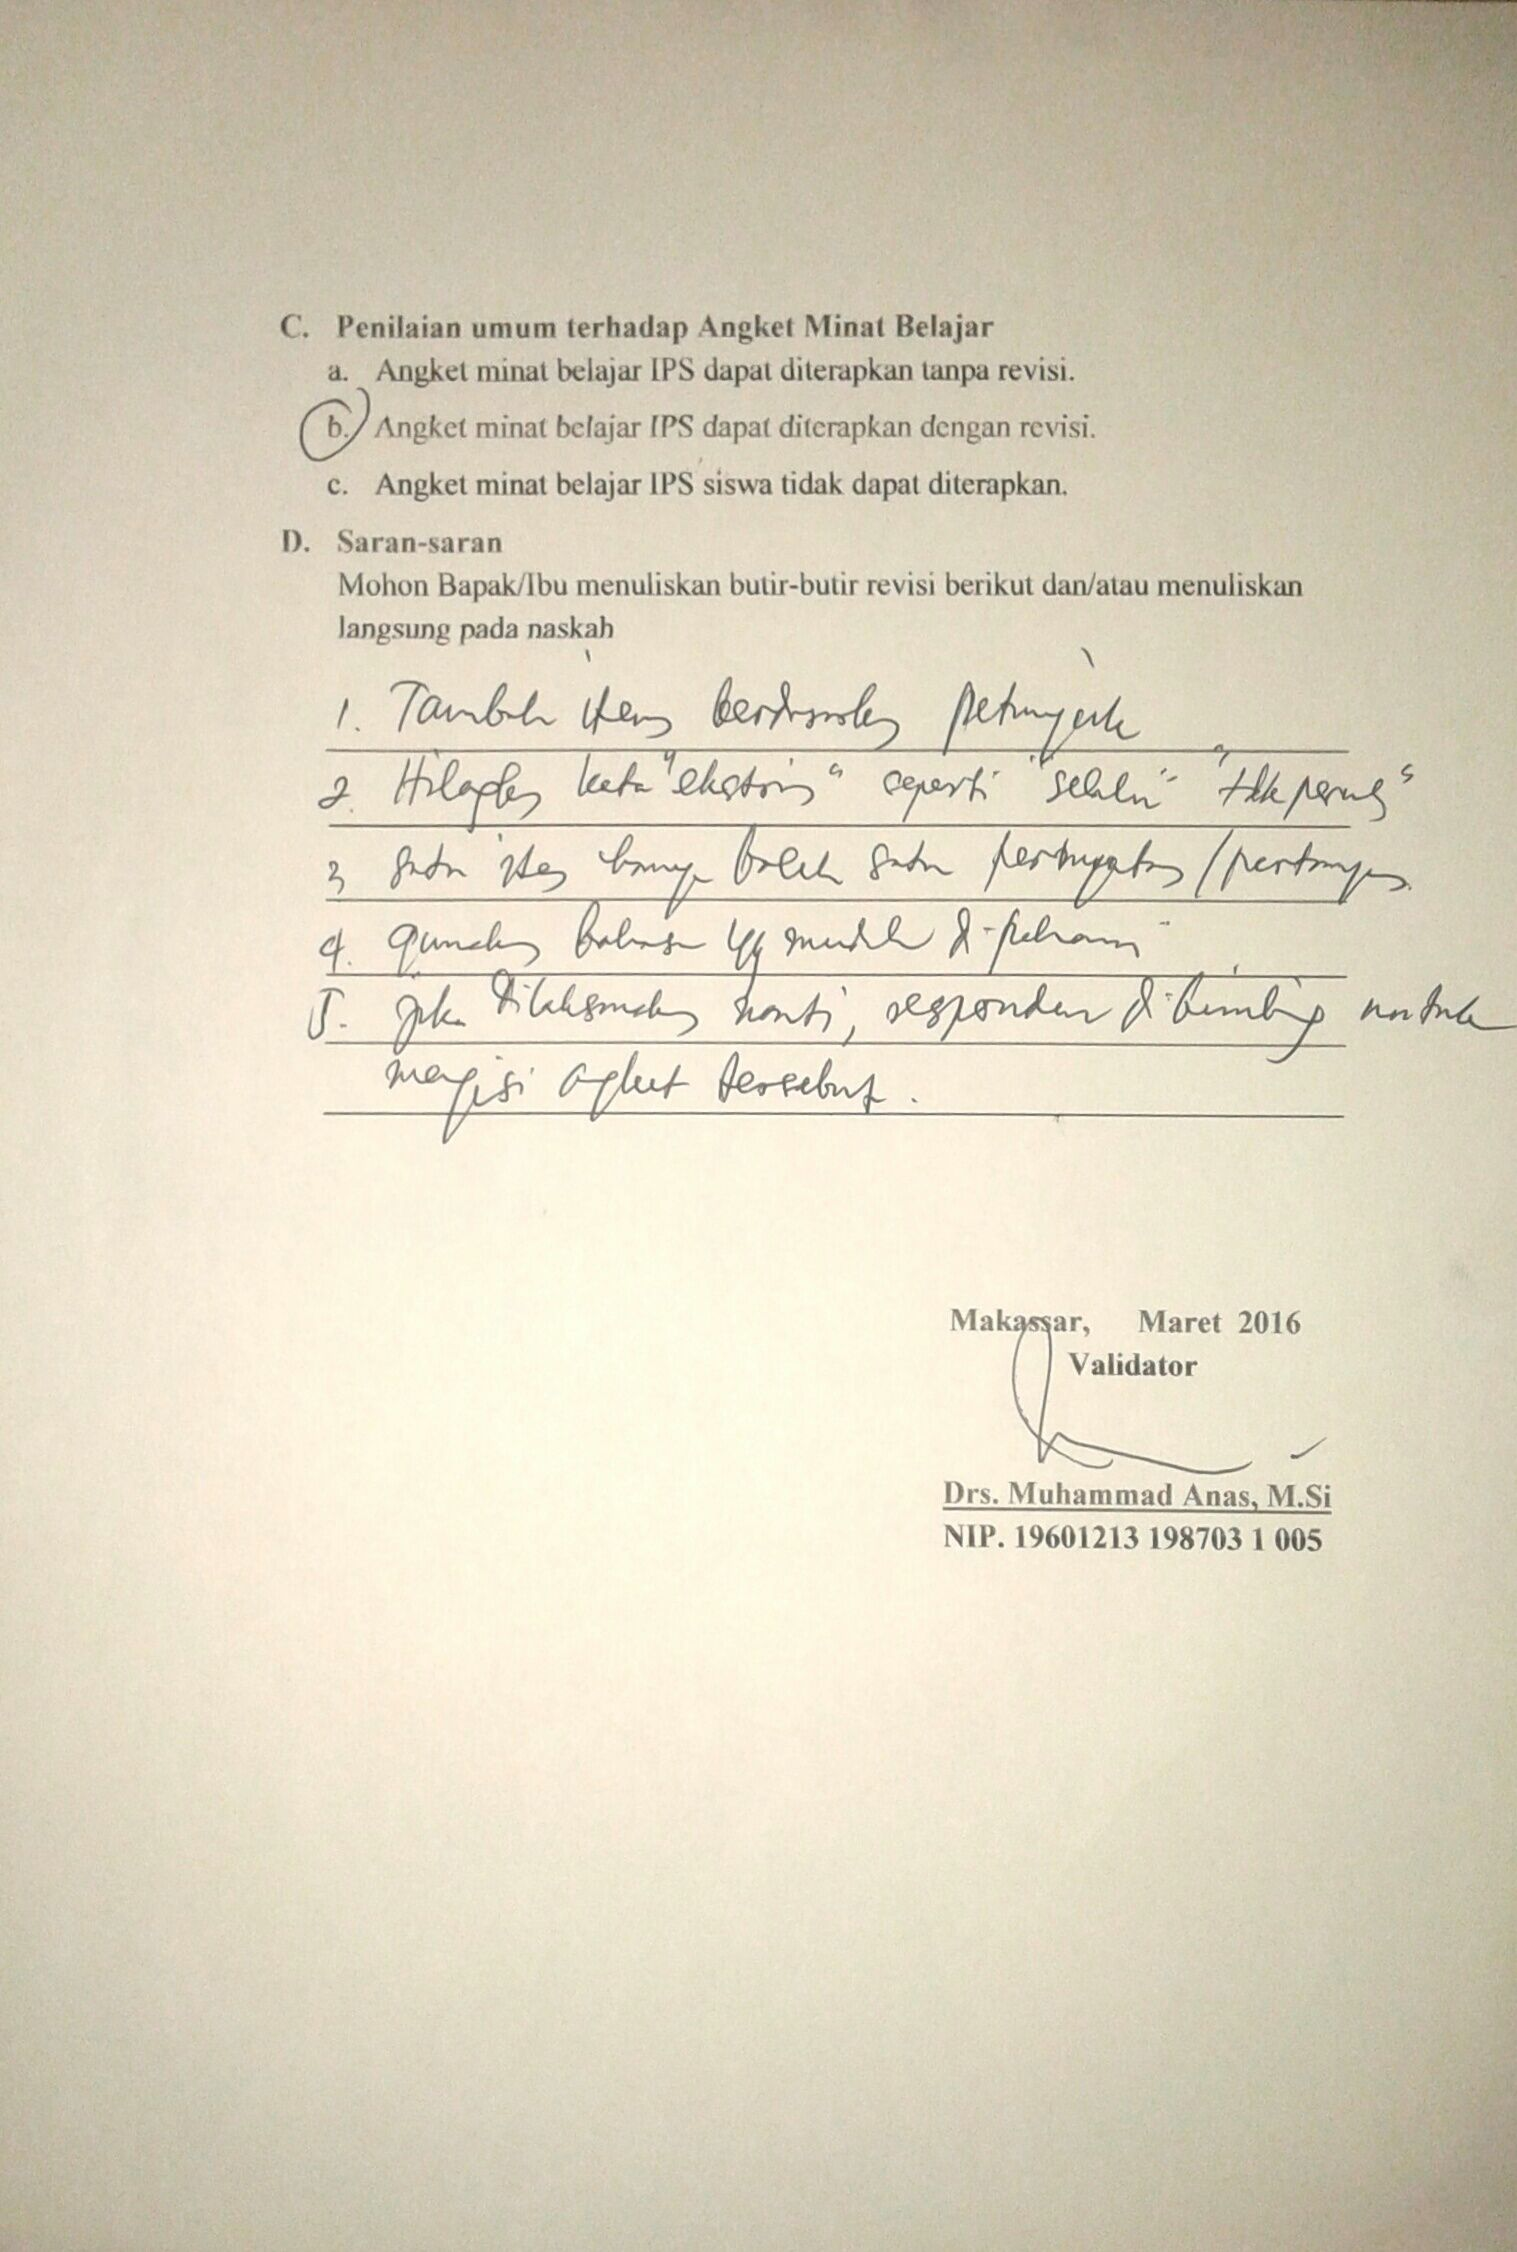 C. Penilaian umum terhadap Angket Minat Belajar
a. Angket minat belajar IPS dapat diterapkan tanpa revisi.
b. Angket minat belajar IPS dapat diterapkan dengan revisi.
c. Angket minat belajar IPS siswa tidak dapat diterapkan.
D. Saran-saran
Mohon Bapak/Ibu menuliskan butir-butir revisi berikut dan/atau menuliskan
langsung pada naskah
1. Tambah item berdasarkan petunjuk
2. Hilangkan kata "ekstrim" seperti "selalu" "tdk pernah"
3 satu item hanya boleh satu pernyataan/pertanyaan
4. gunakan bahasa yg mudah di-pahami
5. jika dilaksanakan nanti, responden di-bimbing untuk
mengisi angket tersebut.
Makassar, Maret 2016
Validator
Drs. Muhammad Anas, M.Si
NIP. 19601213 198703 1 005